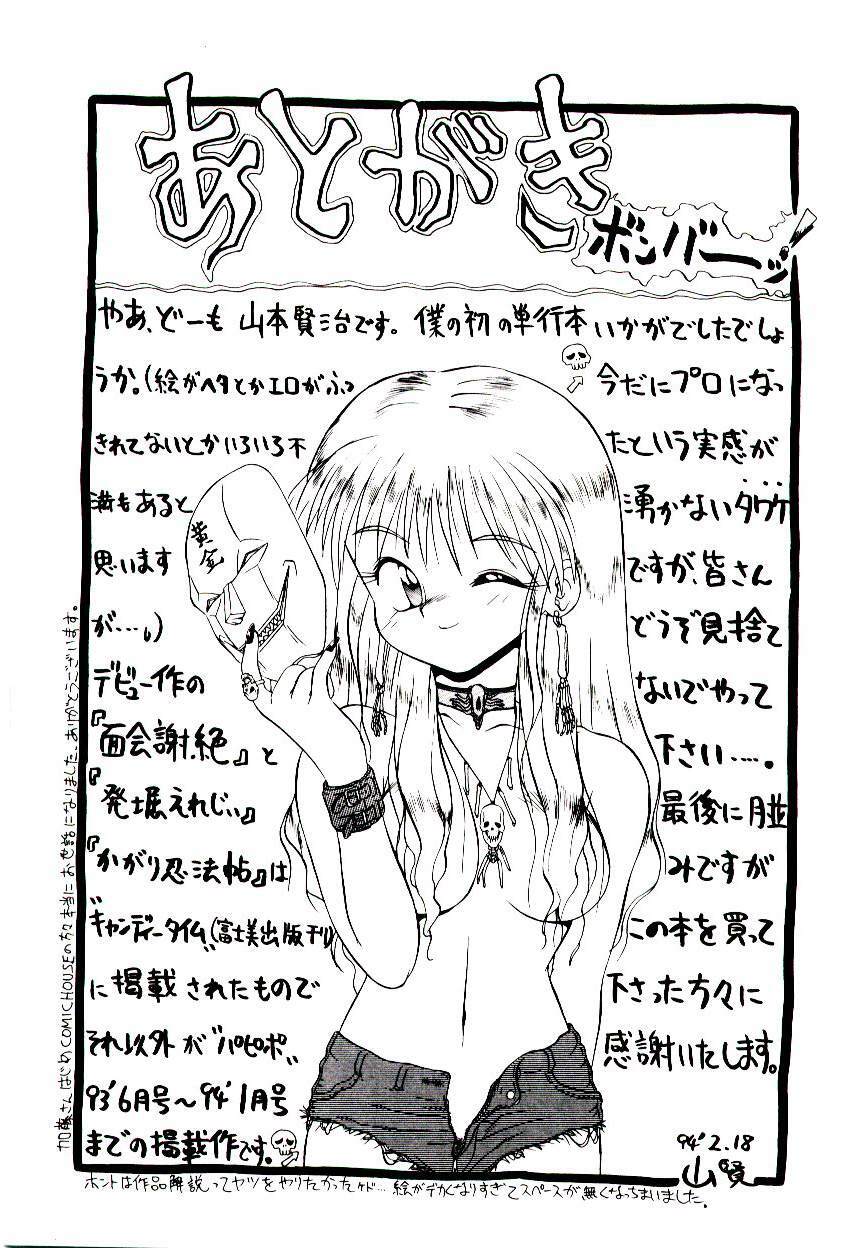 あとがき
ボンバーッ!
やあ、どーも 山本賢治です。僕の初の単行本いかがでしたでしょ
うか。(絵がヘタとかエロがふっ
きれてないとかいろいろ不
満もあると
思います
が…。)
デビュー作の
『面会謝絶』と
『発堀えれじぃ』
『かがり忍法帖』は
"キャンディータイム"(富士美出版刊)
に掲載されたもので
それ以外が"パピポ"
93'6月号〜94'1月号
までの掲載作です。
今だにプロになっ
たという実感が
湧かないタワケ
ですが、皆さん
どうぞ見捨て
ないでやって
下さい……。
最後に月並
みですが
この本を買って
下さった方々に
感謝いたします。
94'2.18
山賢
黄金
加藤さんはじめCOMIC HOUSEの方々本当にお世話になりました。ありがとうございます。
ホントは作品解説ってヤツをやりたかったけド…絵がデカくなりすぎてスペースが無くなっちまいました。